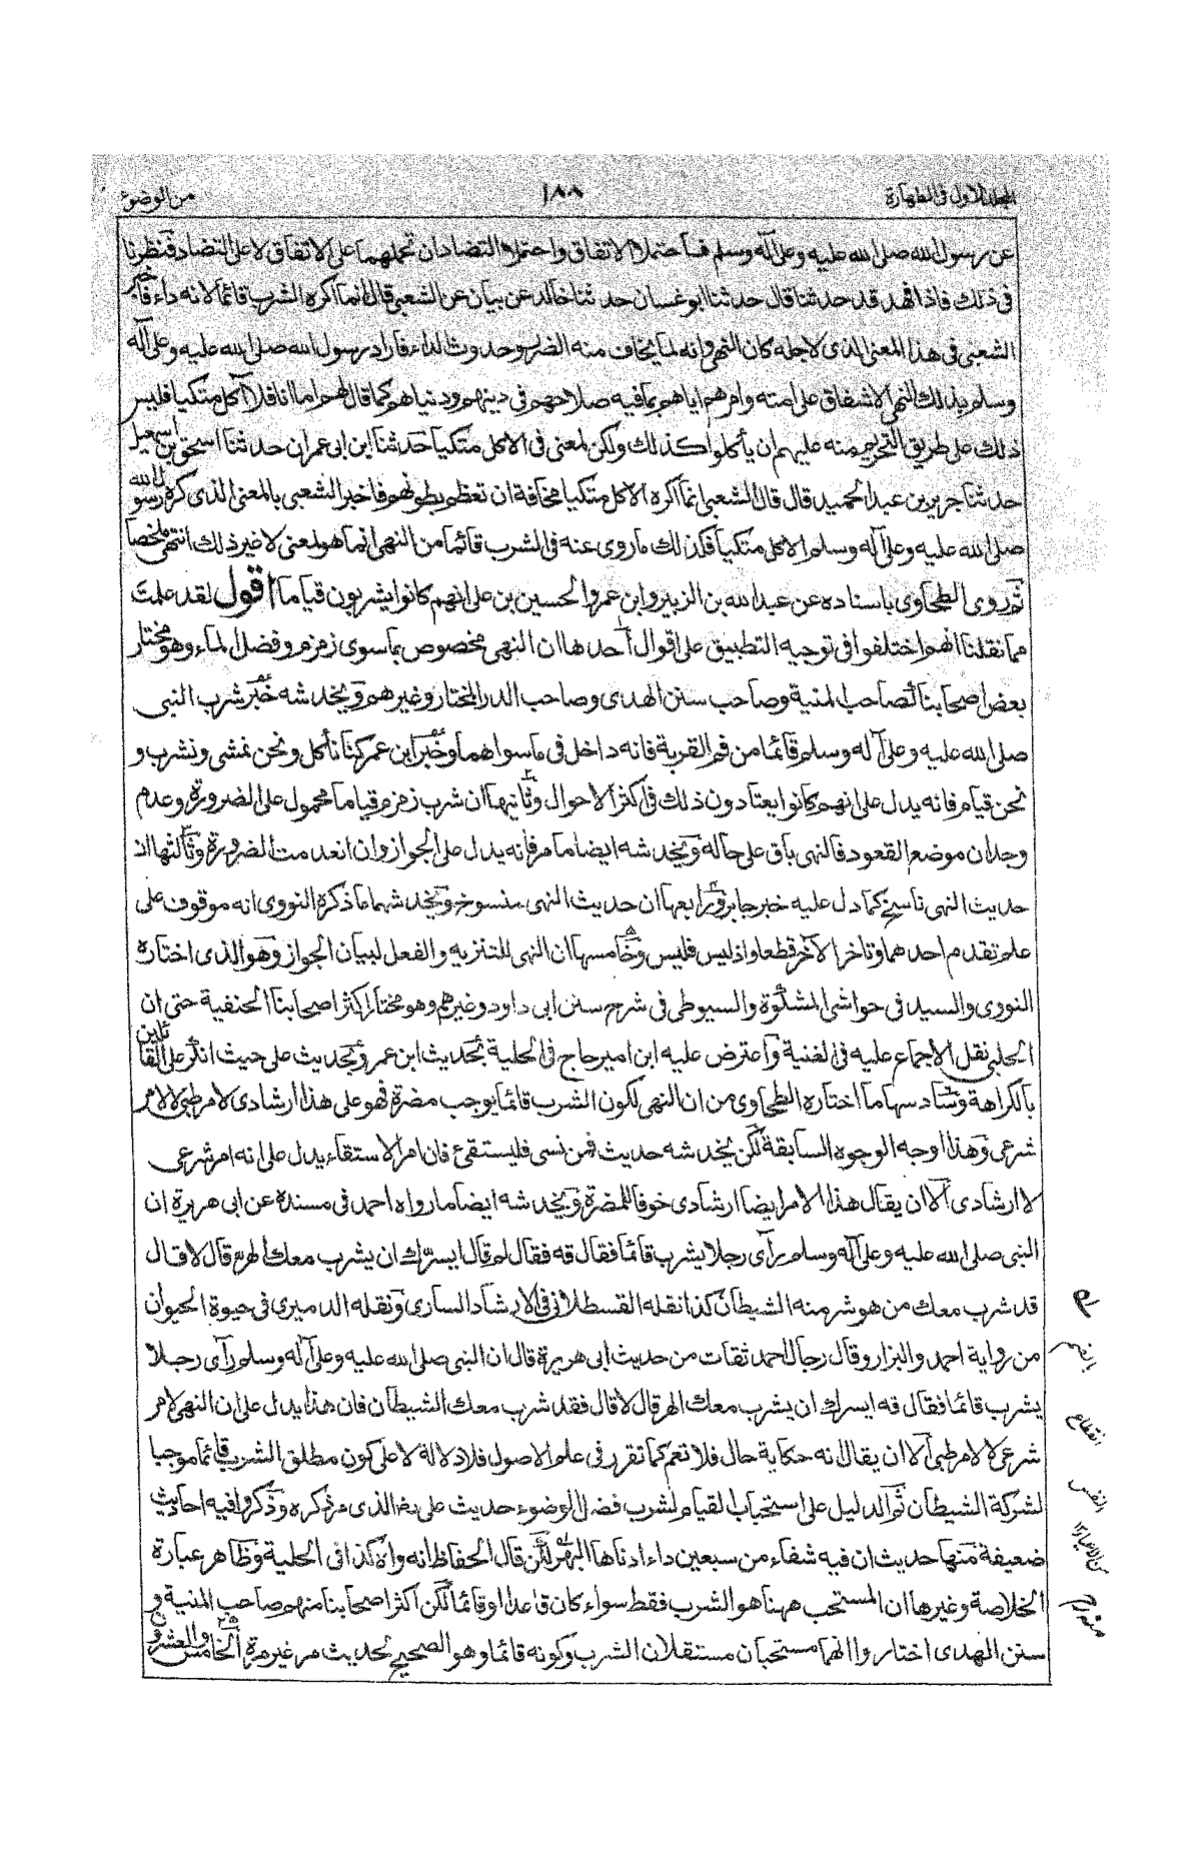 المجلد الاول فى الطهارة ١٨٨ من الوضوء
عن رسول الله صلى الله عليه وعلى آله وسلم فما احتملا الاتفاق واحتملا التضاد ان تحملهما على الاتفاق لا على التضاد فنظرنا
فى ذلك فاذا فهد قد حدثنا قال حدثنا ابو غسان حدثنا خالد عن بيان عن الشعبى قال انما اكره الشرب قائما لانه داء فاخبر
الشعبى فى هذا المعنى الذى لاجله كان النهى وانه لما يخاف منه الضرر وحدوث الداء فاراد رسول الله صلى الله عليه وعلى آله
وسلم بذلك النهى الاشفاق على امته وامرهم اياهم بما فيه صلاحهم فى دينهم ودنياهم كما قال لهم اما انا فلا آكل متكيا فليس
ذلك على طريق التحريم منه عليهم ان يأكلوا كذلك ولكن لمعنى فى الاكل متكيا حدثنا ابن ابى عمران حدثنا اسحق بن اسمعيل
حدثنا جرير بن عبد الحميد قال قال الشعبى انما اكره الاكل متكيا مخافة ان تعظم بطونهم فاخبر الشعبى بالمعنى الذى كره رسول الله
صلى الله عليه وعلى آله وسلم الاكل متكيا فكذلك ما روى عنه فى الشرب قائما من النهى انما هو لمعنى لا غير ذلك انتهى ملخصا
ثم روى الطحاوى باسناده عن عبد الله بن الزبير وابن عمر والحسين بن على انهم كانوا يشربون قياما اقول لقد علمت
مما نقلنا انهم اختلفوا فى توجيه التطبيق على اقوال احدها ان النهى مخصوص بما سوى زمزم وفضل الماء وهو مختار
بعض اصحابنا كصاحب المنية وصاحب سنن الهدى وصاحب الدر المختار وغيرهم ويخدشه خبر شرب النبى
صلى الله عليه وعلى آله وسلم قائما من فم القربة فانه داخل فى ما سواهما وخبر ابن عمر كنا نأكل ونحن نمشى ونشرب و
نحن قيام فانه يدل على انهم كانوا يعتادون ذلك فى اكثر الاحوال وثانيها ان شرب زمزم قياما محمول على الضرورة وعدم
وجدان موضع القعود فالنهى باق على حاله ويخدشه ايضا ما مر فانه يدل على الجواز وان انعدمت الضرورة وثالثها ان
حديث النهى ناسخ كما دل عليه خبر جابر ورابعها ان حديث النهى منسوخ ويخدشهما ما ذكره النووى انه موقوف على
علم تقدم احدهما وتاخر الآخر قطعا واذ ليس فليس وخامسها ان النهى للتنزيه والفعل لبيان الجواز وهو الذى اختاره
النووى والسيد فى حواشى المشكوة والسيوطى فى شرح سنن ابى داود وغيرهم وهو مختار اكثر اصحابنا الحنفية حتى ان
الحلبى نقل الاجماع عليه فى الغنية واعترض عليه ابن امير حاج فى الحلية بحديث ابن عمر وبحديث على حيث انكر على القائلين
بالكراهة وسادسها ما اختاره الطحاوى من ان النهى لكون الشرب قائما يوجب مضرة فهو على هذا ارشادى لامر طبى لا لامر
شرعى وهذا اوجه الوجوه السابقة لكن يخدشه حديث فمن نسى فليستقئ فان امر الاستقاء يدل على انه امر شرعى
لا ارشادى الا ان يقال هذا الامر ايضا ارشادى خوفا للمضرة ويخدشه ايضا ما رواه احمد فى مسنده عن ابى هريرة ان
النبى صلى الله عليه وعلى آله وسلم رأى رجلا يشرب قائما فقال قه فقال لم قال ايسرك ان يشرب معك الهر قال لا قال
قد شرب معك من هو شر منه الشيطان كذا نقله القسطلانى فى الارشاد السارى ونقله الدميرى فى حيوة الحيوان
من رواية احمد والبزار وقال رجال احمد ثقات من حديث ابى هريرة قال ان النبى صلى الله عليه وعلى آله وسلم رأى رجلا
يشرب قائما فقال قه ايسرك ان يشرب معك الهر قال لا قال فقد شرب معك الشيطان فان هذا يدل على ان النهى لامر
شرعى لا لامر طبى الا ان يقال انه حكاية حال فلا تعم كما تقرر فى علم الاصول فلا دلالة له على كون مطلق الشرب قائما موجبا
لشركة الشيطان ثم الدليل على استحباب القيام لشرب فضل الوضوء حديث على رضه الذى مر ذكره وذكروا فيه احاديث
ضعيفة منها حديث ان فيه شفاء من سبعين داء ادناها البهر لكن قال الحفاظ انه واه كذا فى الحلية وظاهر عبارة
الخلاصة وغيرها ان المستحب ههنا هو الشرب فقط سواء كان قاعدا او قائما لكن اكثر اصحابنا منهم صاحب المنية و
سنن الهدى اختاروا انهما مستحبان مستقلان الشرب وكونه قائما وهو الصحيح لحديث مر غير مرة الخامس والعشرون
بالضم
انقطاع
النفس
من الاعياء ١٢